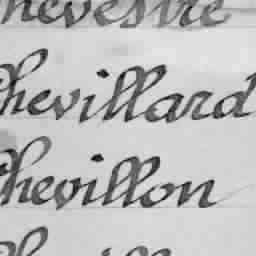 Chevestre
Chevillard
Chevillon